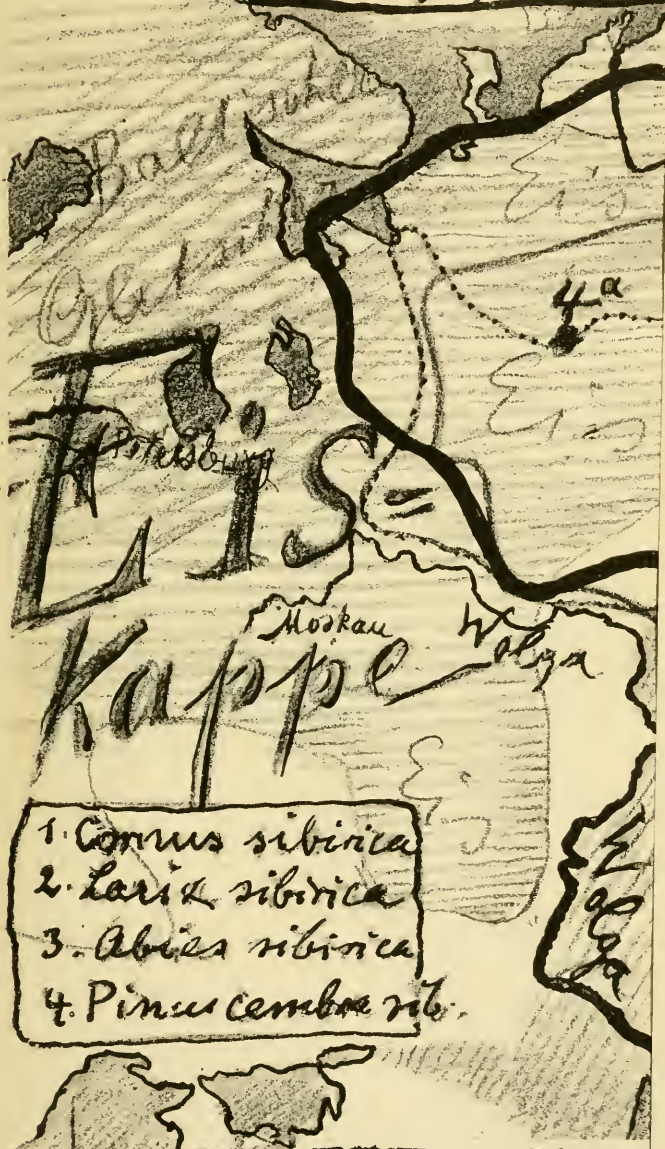 Baltischer
Eis
4a
Eis
Petersburg
Eis-
Moskau
Wolga
Kappe
Eis
1. Cornus sibirica
2. Larix sibirica
3. Abies sibirica
4. Pinus cembra sib.
Wolga